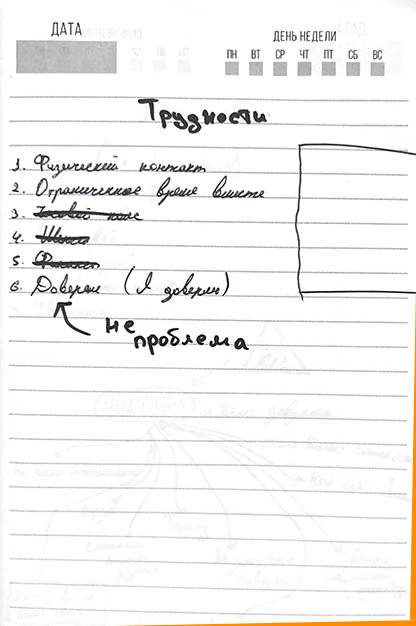 ДАТА
ДЕНЬ НЕДЕЛИ
ПН ВТ СР ЧТ ПТ СБ ВС
Трудности
1. Физический контакт
2. Ограниченное время вместе
3. Часовой пояс
4.
5.
6. Доверие (Я доверяю)
не
проблема